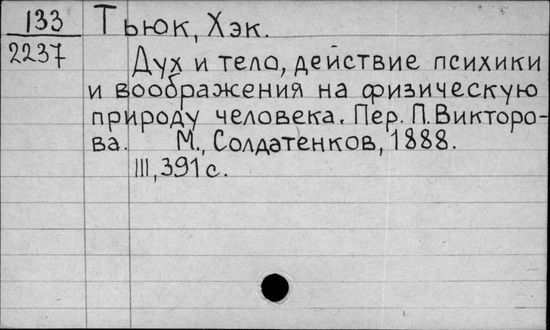 133 Тьюк, Хэк.
2237
Дух и тело, действие психики
и воображения на физическую
природу человека. Пер. П. Викторо-
ва. М., Солдатенков, 1888.
III, 391 с.